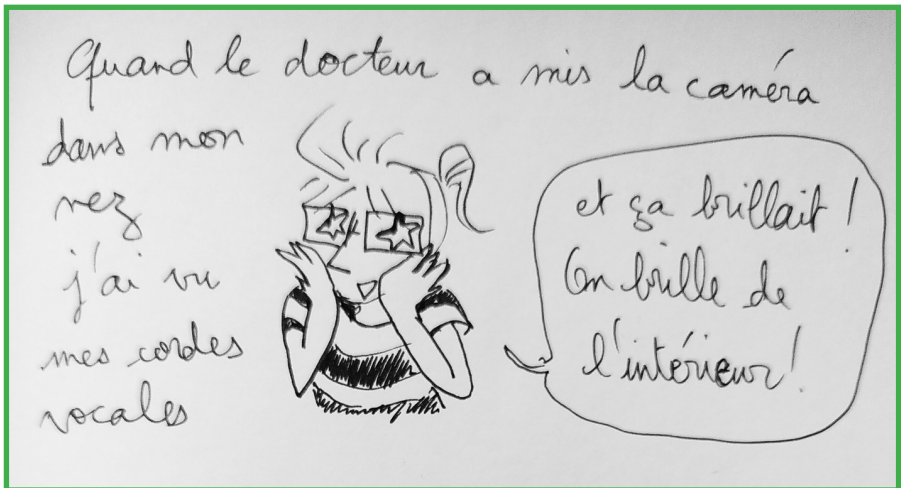 Quand le docteur a mis la caméra
dans mon
nez
j'ai vu
mes cordes
vocales
et ça brillait !
On brille de
l'intérieur !